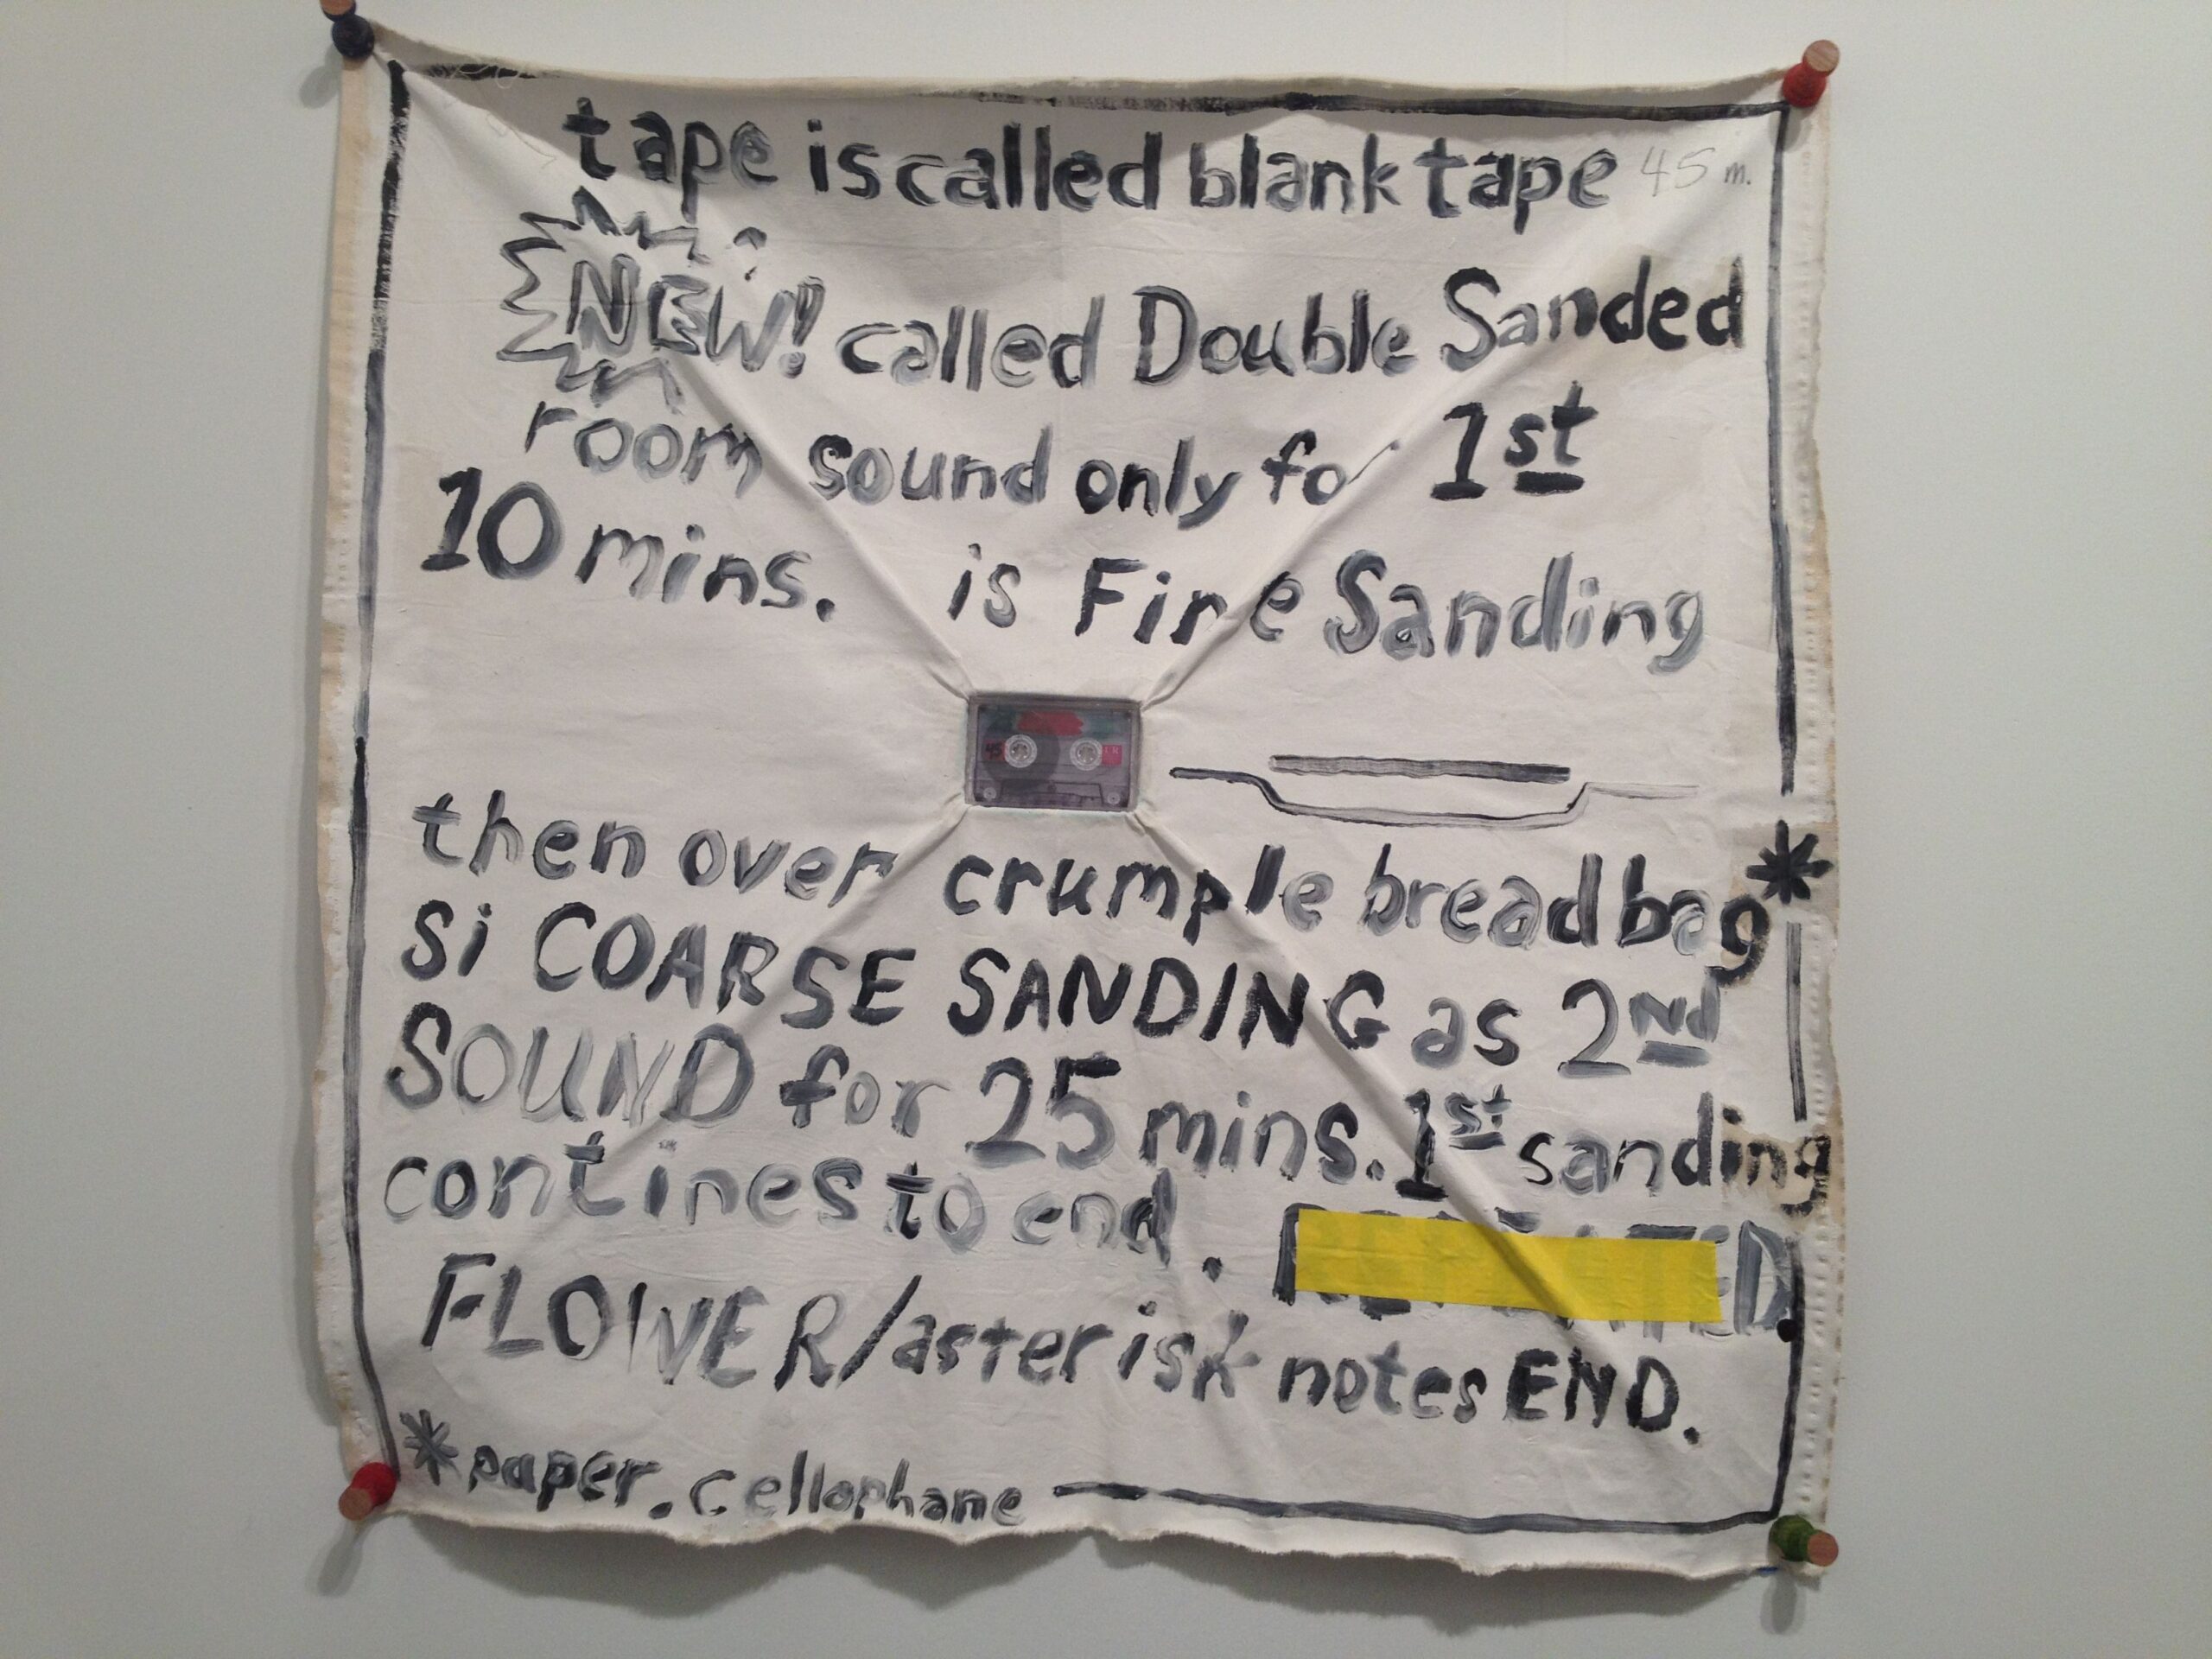 tape is called blank tape 45 m.
NEW! called Double Sanded
room sound only for 1st
10 mins. is Fine Sanding
45
then over crumple bread bag*
si COARSE SANDING as 2Nd
SOUND for 25 mins. 1st sanding
contines to end.
FLOWER/asterisk notes END.
*paper. cellophane